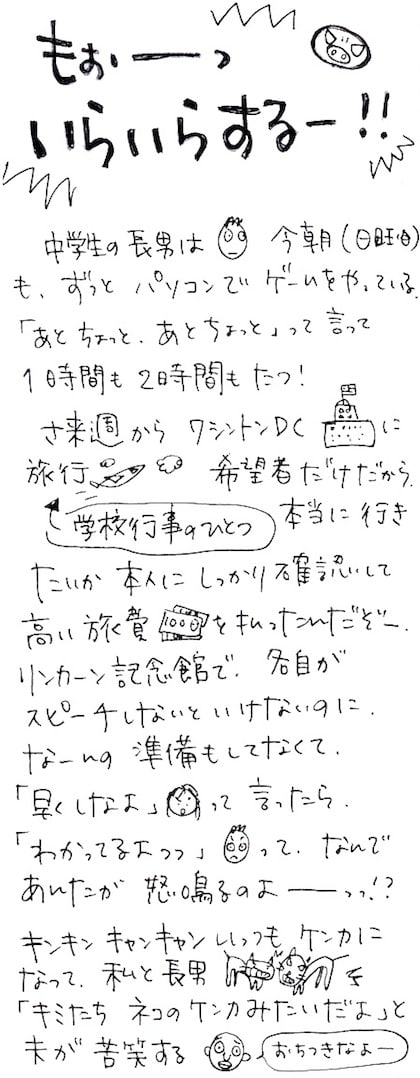 もぉーっ
いらいらするー!!
中学生の長男は 今朝(日曜日)
も、ずっと パソコンで ゲームをやっている。
「あとちょっと、あとちょっと」って 言って
1時間も 2時間も たつ!
さ来週から ワシントンDC に
旅行 希望者だけだから、
学校行事のひとつ 本当に 行き
たいか 本人に しっかり 確認して
高い 旅費 を払ったんだぞー。
リンカーン記念館で、各自が
スピーチしないと いけないのに、
なーんの 準備もしてなくて、
「早くしなよ」って 言ったら、
「わかってるよっっ」って、なんで
あんたが 怒鳴るのよーーっっ!?
キンキン キャンキャン いっつも ケンカに
なって、私と長男
「キミたち ネコのケンカみたいだよ」と
夫が 苦笑する おちつきなよー